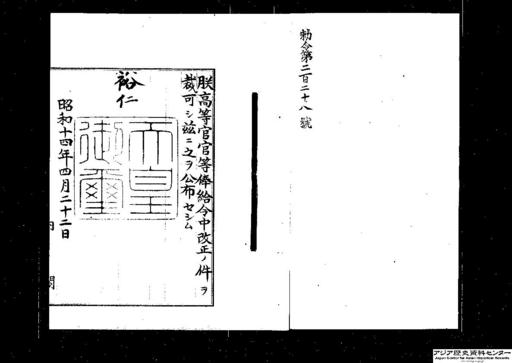 勅令第二百二十八號
朕高等官官等俸給令中改正ノ件ヲ
裁可シ茲ニ之ヲ公布セシム
裕仁
天皇御璽
昭和十四年四月二十二日
内閣
アジア歴史資料センター
Japan Center for Asian Historical Records